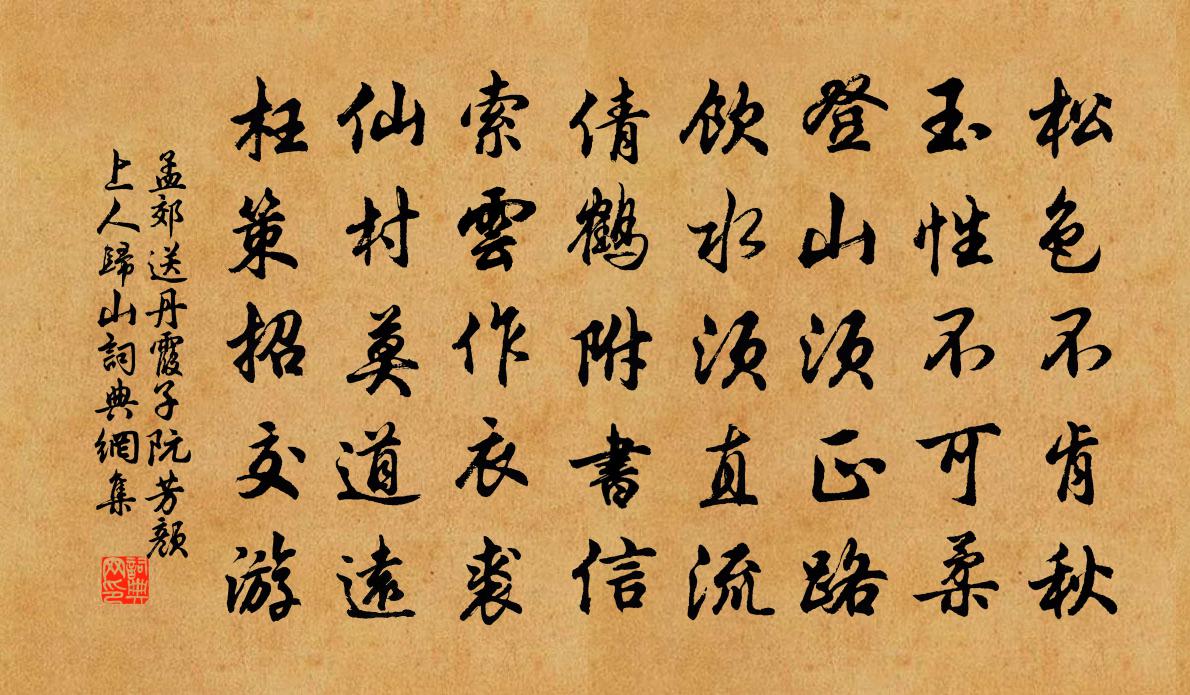 松色不肯秋
玉性不可柔
登山須正路
飲水須直流
倩鶴附書信
索雲作衣裘
仙村莫道遠
枉策招交游
孟郊送丹霞子阮芳顏
上人歸山詞典網集
詞典
網印